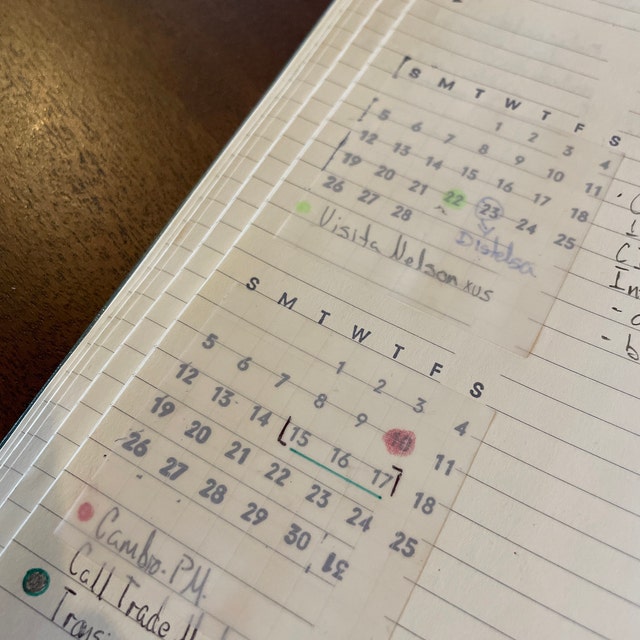 S M T W T F S
1 2 3 4
5 6 7 8 9 10 11
12 13 14 15 16 17 18
19 20 21 22 23 24 25
26 27 28
Visita Nelson xus
S M T W T F S
1 2 3 4
5 6 7 8 9 11
12 13 14 15 16 17 18
19 20 21 22 23 24 25
26 27 28 29 30 31
Cambo PM
Call Trade